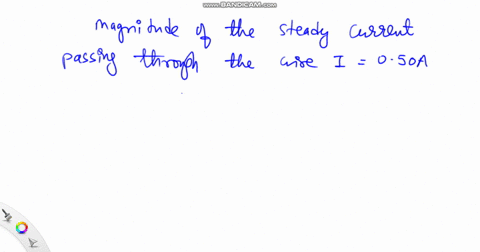 WWW.BANDICAM.COM
magnitude of the steady current
passing through the wire I = 0.50A